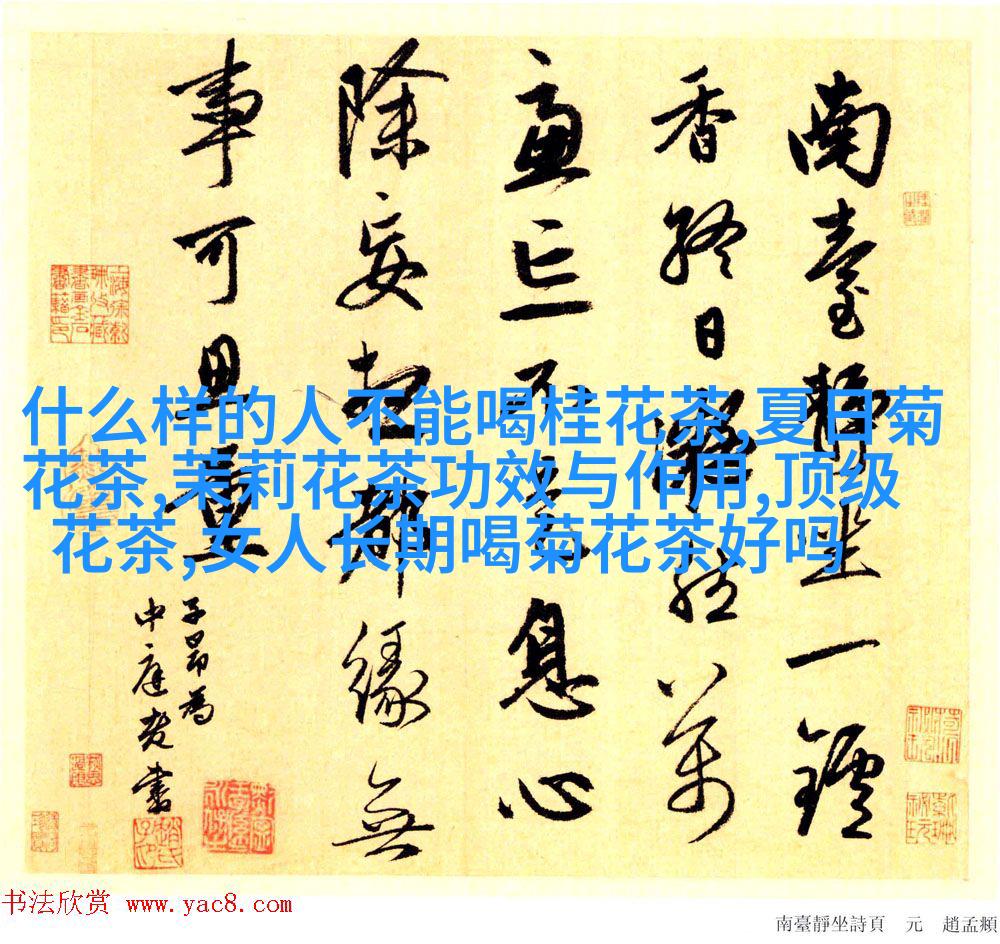 南臺靜坐一鑪
香終日凝然萬
慮亡不是息心
除妄想都緣無
事可思量
子昂為
中庭老書
什么样的人不能喝桂花茶,夏日菊
花茶,茉莉花茶功效与作用,顶级
花茶,女人长期喝菊花茶好吗
书法欣赏 www.yac8.com
南臺靜坐詩頁 元 趙孟頫